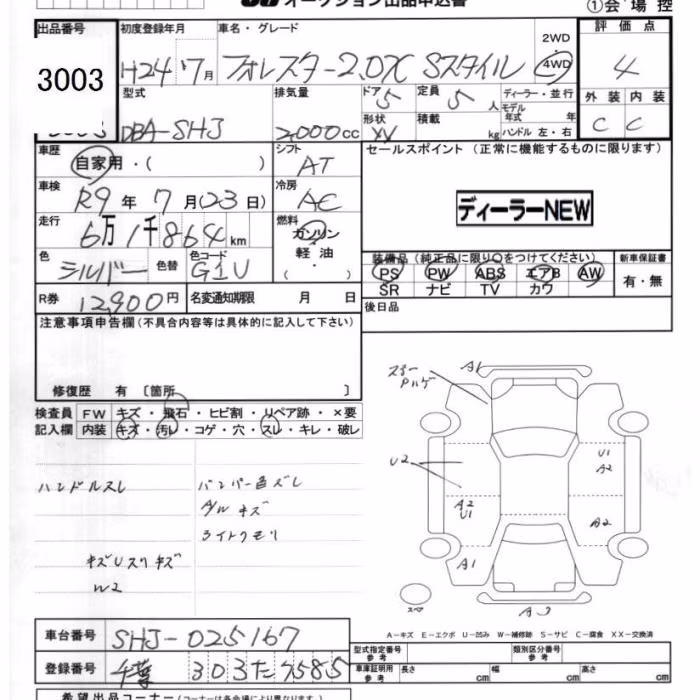 オークション出品申込書 ①会場控
出品番号 初度登録年月 車名・グレード 評価点
3003 H24年7月 フォレスター2.0X Sスタイル 2WD 4WD 4
型式 排気量 ドア 定員 ディーラー・並行 外装 内装
DBA-SHJ 2000cc 5 5人 モデル年式 年 C C
形状 積載 kg ハンドル 左・右
車歴 自家用・( ) シフト AT セールスポイント(正常に機能するものに限ります)
車検 R9年7月(23日) 冷房 AC ディーラーNEW
走行 6万1千864km 燃料 ガソリン 軽油 (・)
色 シルバー 色替 色コード G1U 装備品(純正品に限り○をつけてください) 新車保証書
PS PW ABS エアB AW 有・無
SR ナビ TV カワ
R券 12,900円 名変通知期限 月 日 後日品
注意事項申告欄(不具合内容等は具体的に記入して下さい)
修復歴 有 〔箇所 〕
検査員 FW キズ・飛石・ヒビ割・リペア跡・×要
記入欄 内装 キズ・汚レ・コゲ・穴・スレ・キレ・破レ
A1
ハゲ
U2
U1
A2
A2
U1
A2
A1
A1
A3
スペア
ハンドルスレ バンパー色ズレ
A/Wキズ
ライトクモリ
キズUスリキズ
W2
A-キズ E-エクボ U-凹み W-補修跡 S-サビ C-腐食 XX-交換済
車台番号 SHJ-025167 型式指定番号 参考 類別区分番号 参考
登録番号 千葉 303た7585 車庫証明用 参考 長さ cm 幅 cm 高さ cm
希望出品コーナー